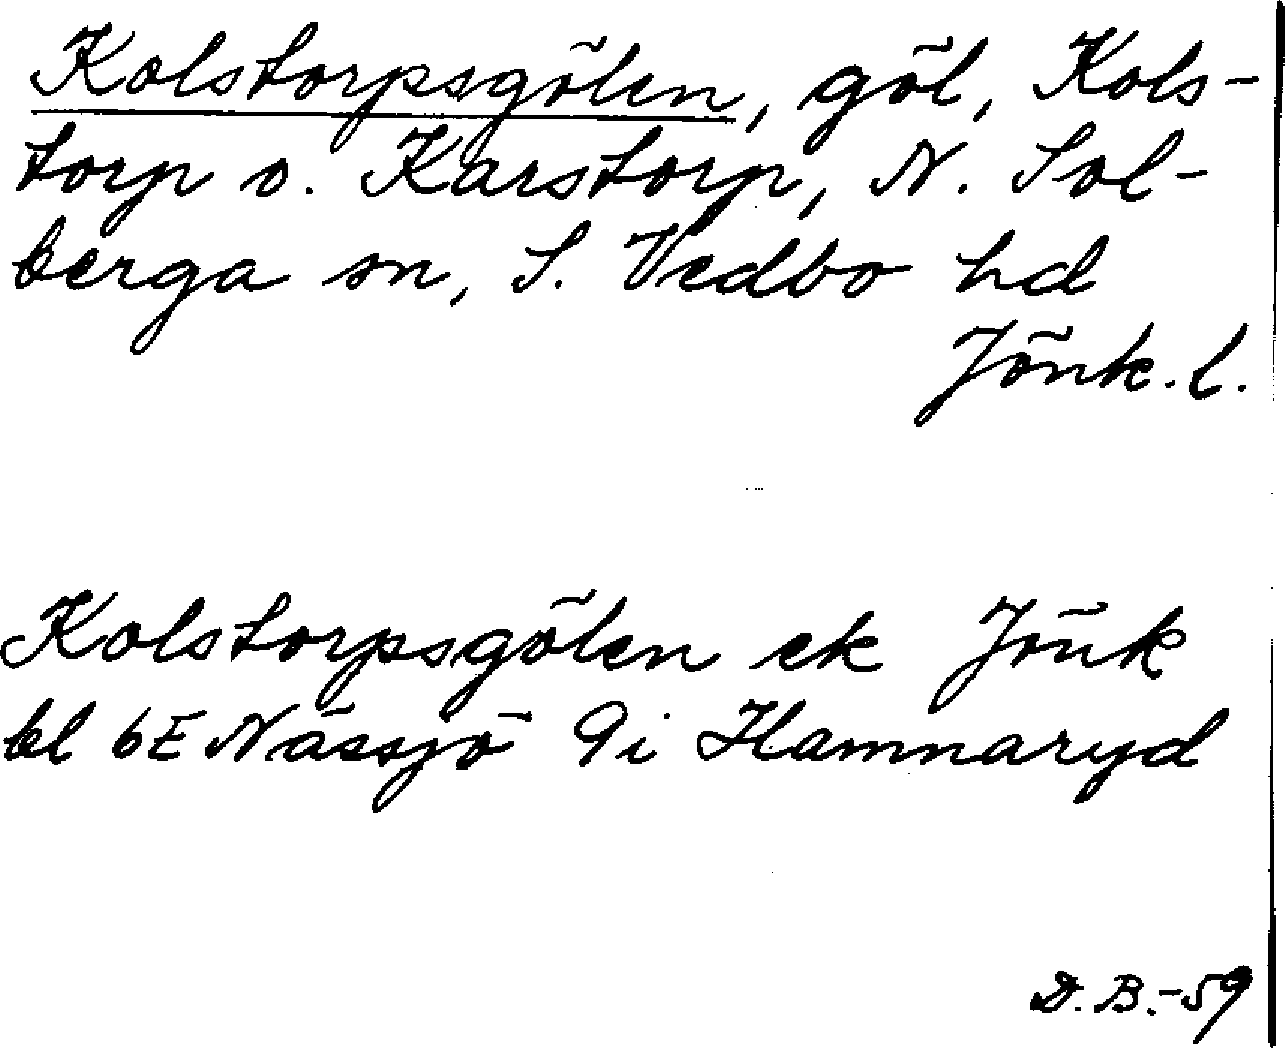 Kolstorpsgölen, göl, Kols-
torp o. Karstorp, N. Sol-
berga sn, S. Vedbo hd
Jönk. l.
Kolstorpsgölen ek Jönk
bl 6E Nässjö 9i Hamnaryd
D. B. -59